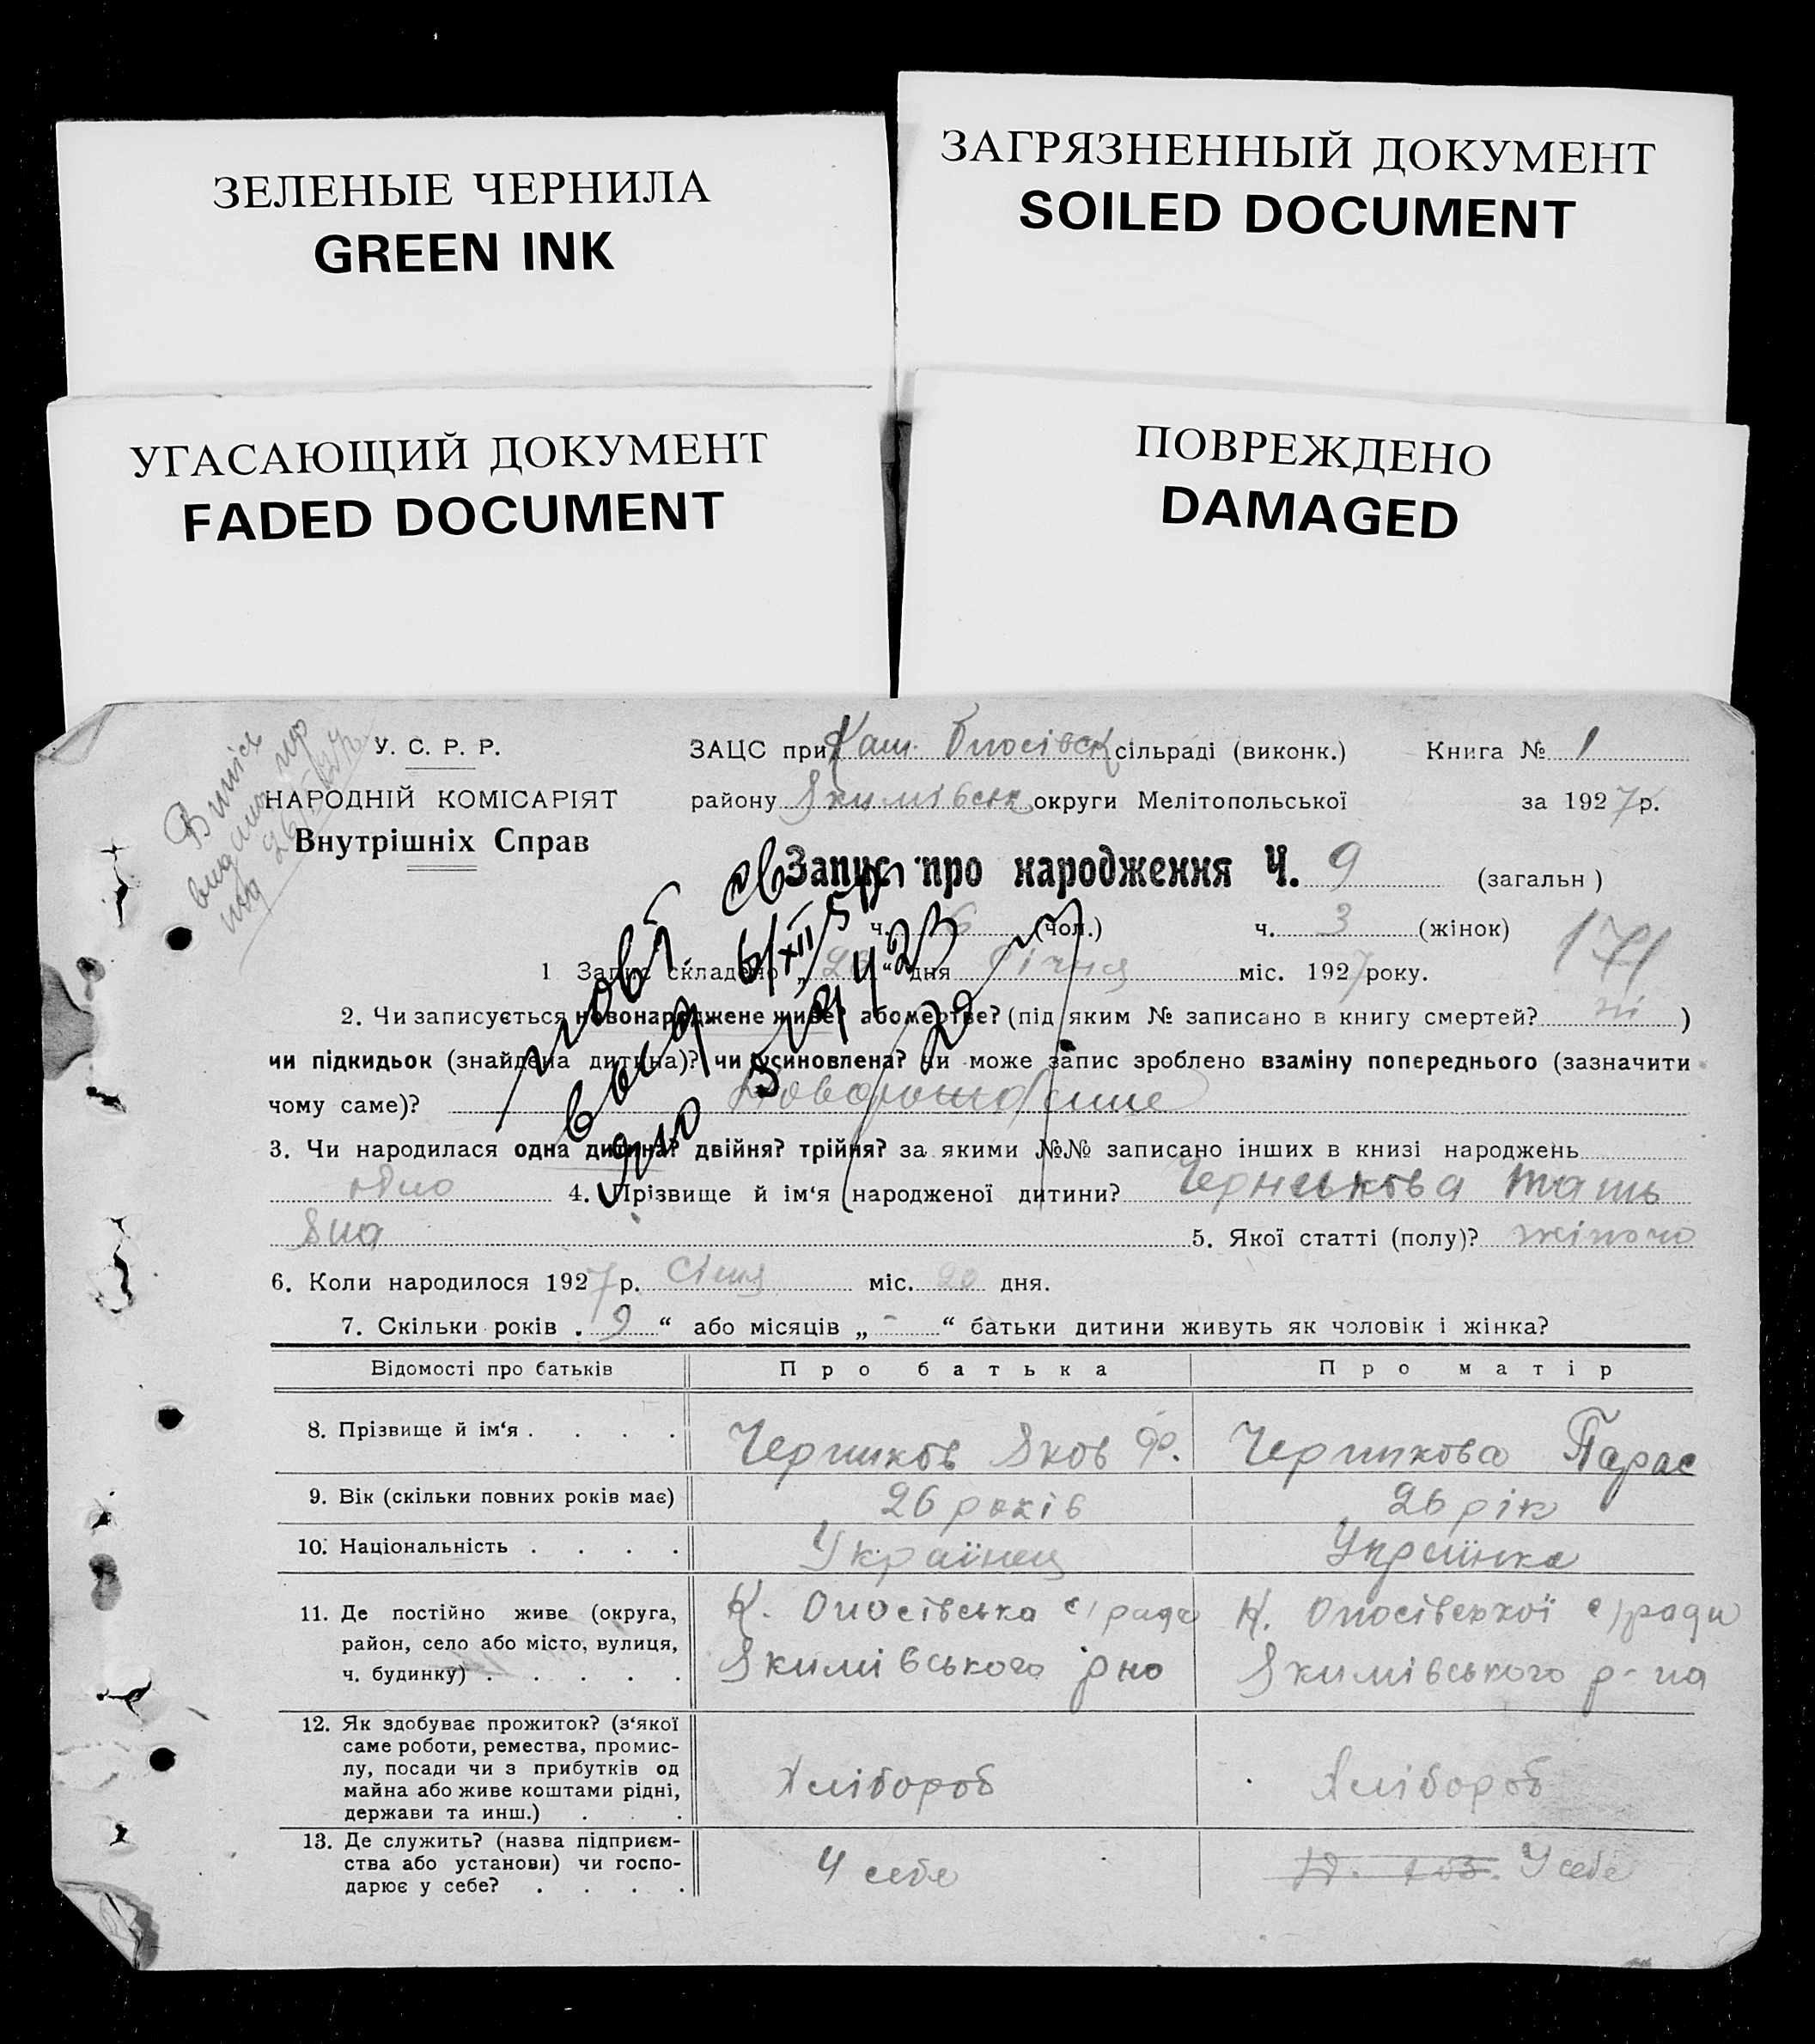 ЗЕЛЕНЫЕ ЧЕРНИЛА
GREEN INK
ЗАГРЯЗНЕННЫЙ ДОКУМЕНТ
SOILED DOCUMENT
УГАСАЮЩИЙ ДОКУМЕНТ
FADED DOCUMENT
ПОВРЕЖДЕНО
DAMAGED
У. С. Р. Р.
НАРОДНІЙ КОМІСАРІЯТ
Внутрішніх Справ
ЗАЦС при сільраді (виконк.) Книга № 1
району Якимівськ округи Мелітопольської за 1927 р.
Запис про народження Ч. 9 (загальн)
ч. 6 (чол.) ч. 3 (жінок)
171
1 Запис складено „ “ дня Січня міс. 1927 року.
2. Чи записується новонароджене живе? або мертве? (під яким № записано в книгу смертей? ні )
чи підкидьок (знайдена дитина)? чи усиновлена? чи може запис зроблено взаміну попереднього (зазначити
чому саме)?
3. Чи народилася одна дитина? двійня? трійня? за якими №№ записано інших в книзі народжень
одно 4. Прізвище й ім'я народженої дитини? Чернікова Тать
яна 5. Якої статті (полу)? жіночо
6. Коли народилося 1927 р. Січня міс. 20 дня.
7. Скільки років „ 9 “ або місяців „ - “ батьки дитини живуть як чоловік і жінка?
Відомості про батьків Про батька Про матір
8. Прізвище й ім'я . . . . Черников Яков Ф. Черникова Парас
9. Вік (скільки повних років має) 26 років 26 рік
10. Національність . . . . Українец Українка
11. Де постійно живе (округа, К. Оносівська с/рада К. Оносівської с/ради
район, село або місто, вулиця, Якимівського рно Якимівського р-на
ч. будинку) . . . . .
12. Як здобуває прожиток? (з'якої
саме роботи, ремества, промис-
лу, посади чи з прибутків од
майна або живе коштами рідні, Хлібороб Хлібороб
держави та инш.) . . .
13. Де служить? (назва підприєм-
ства або установи) чи госпо- У себе У себе
дарює у себе? . . . .